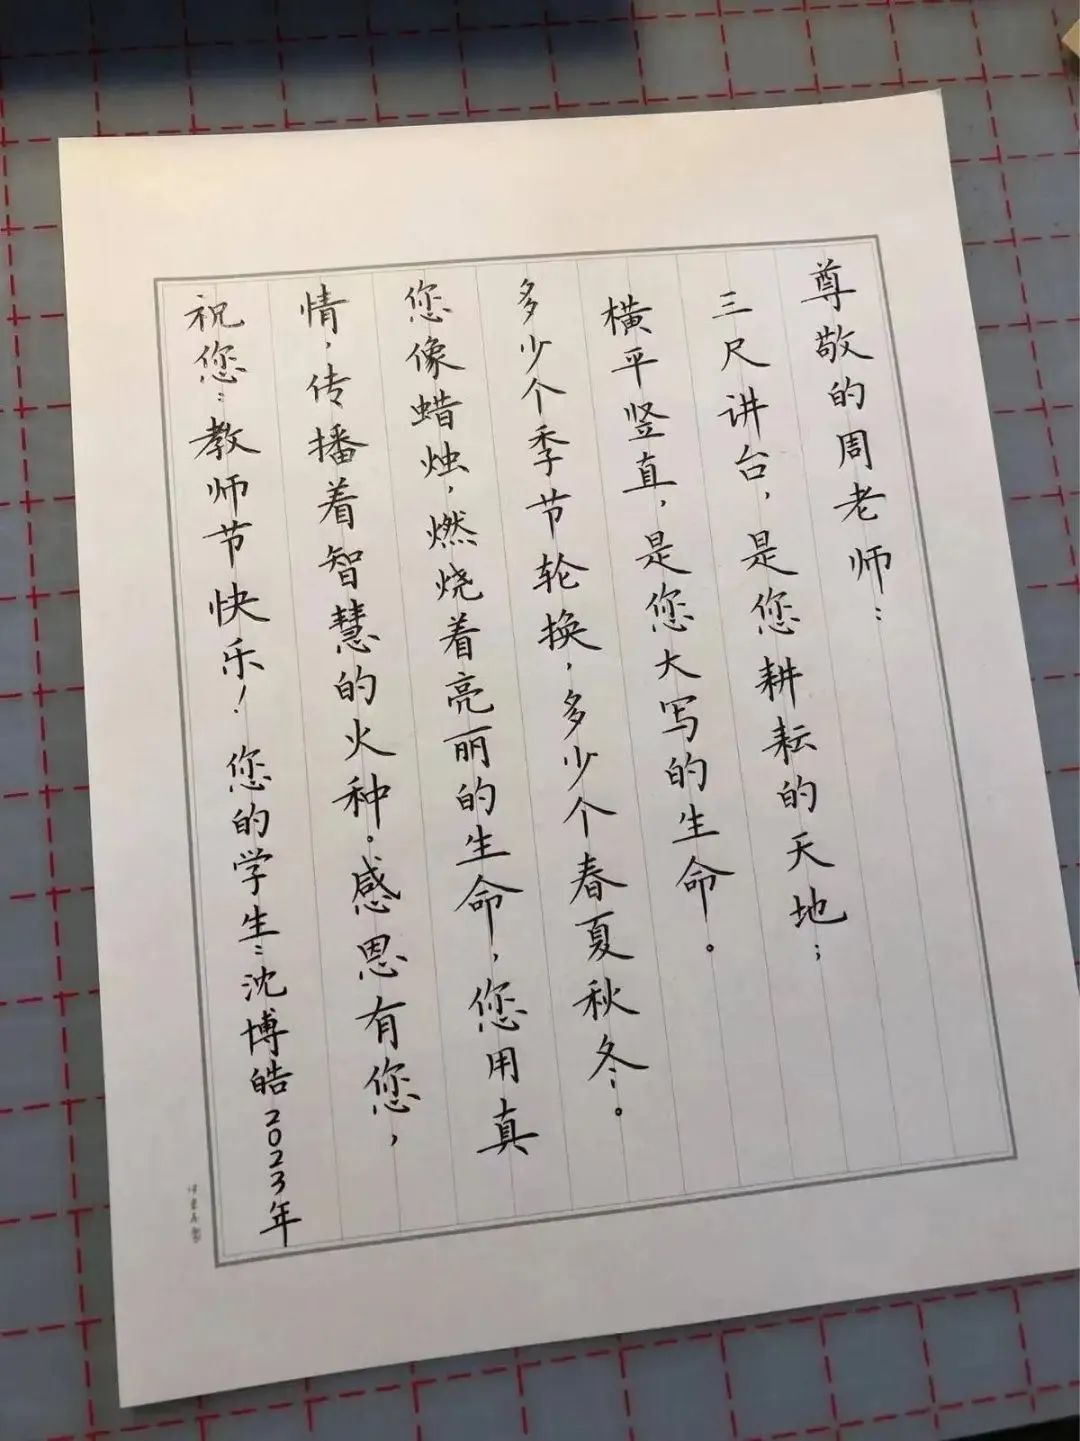 尊敬的周老师：
三尺讲台，是您耕耘的天地；
横平竖直，是您大写的生命。
多少个季节轮换，多少个春夏秋冬。
您像蜡烛，燃烧着亮丽的生命，您用真
情，传播着智慧的火种。感恩有您，
祝您：教师节快乐！您的学生：沈博皓2023年